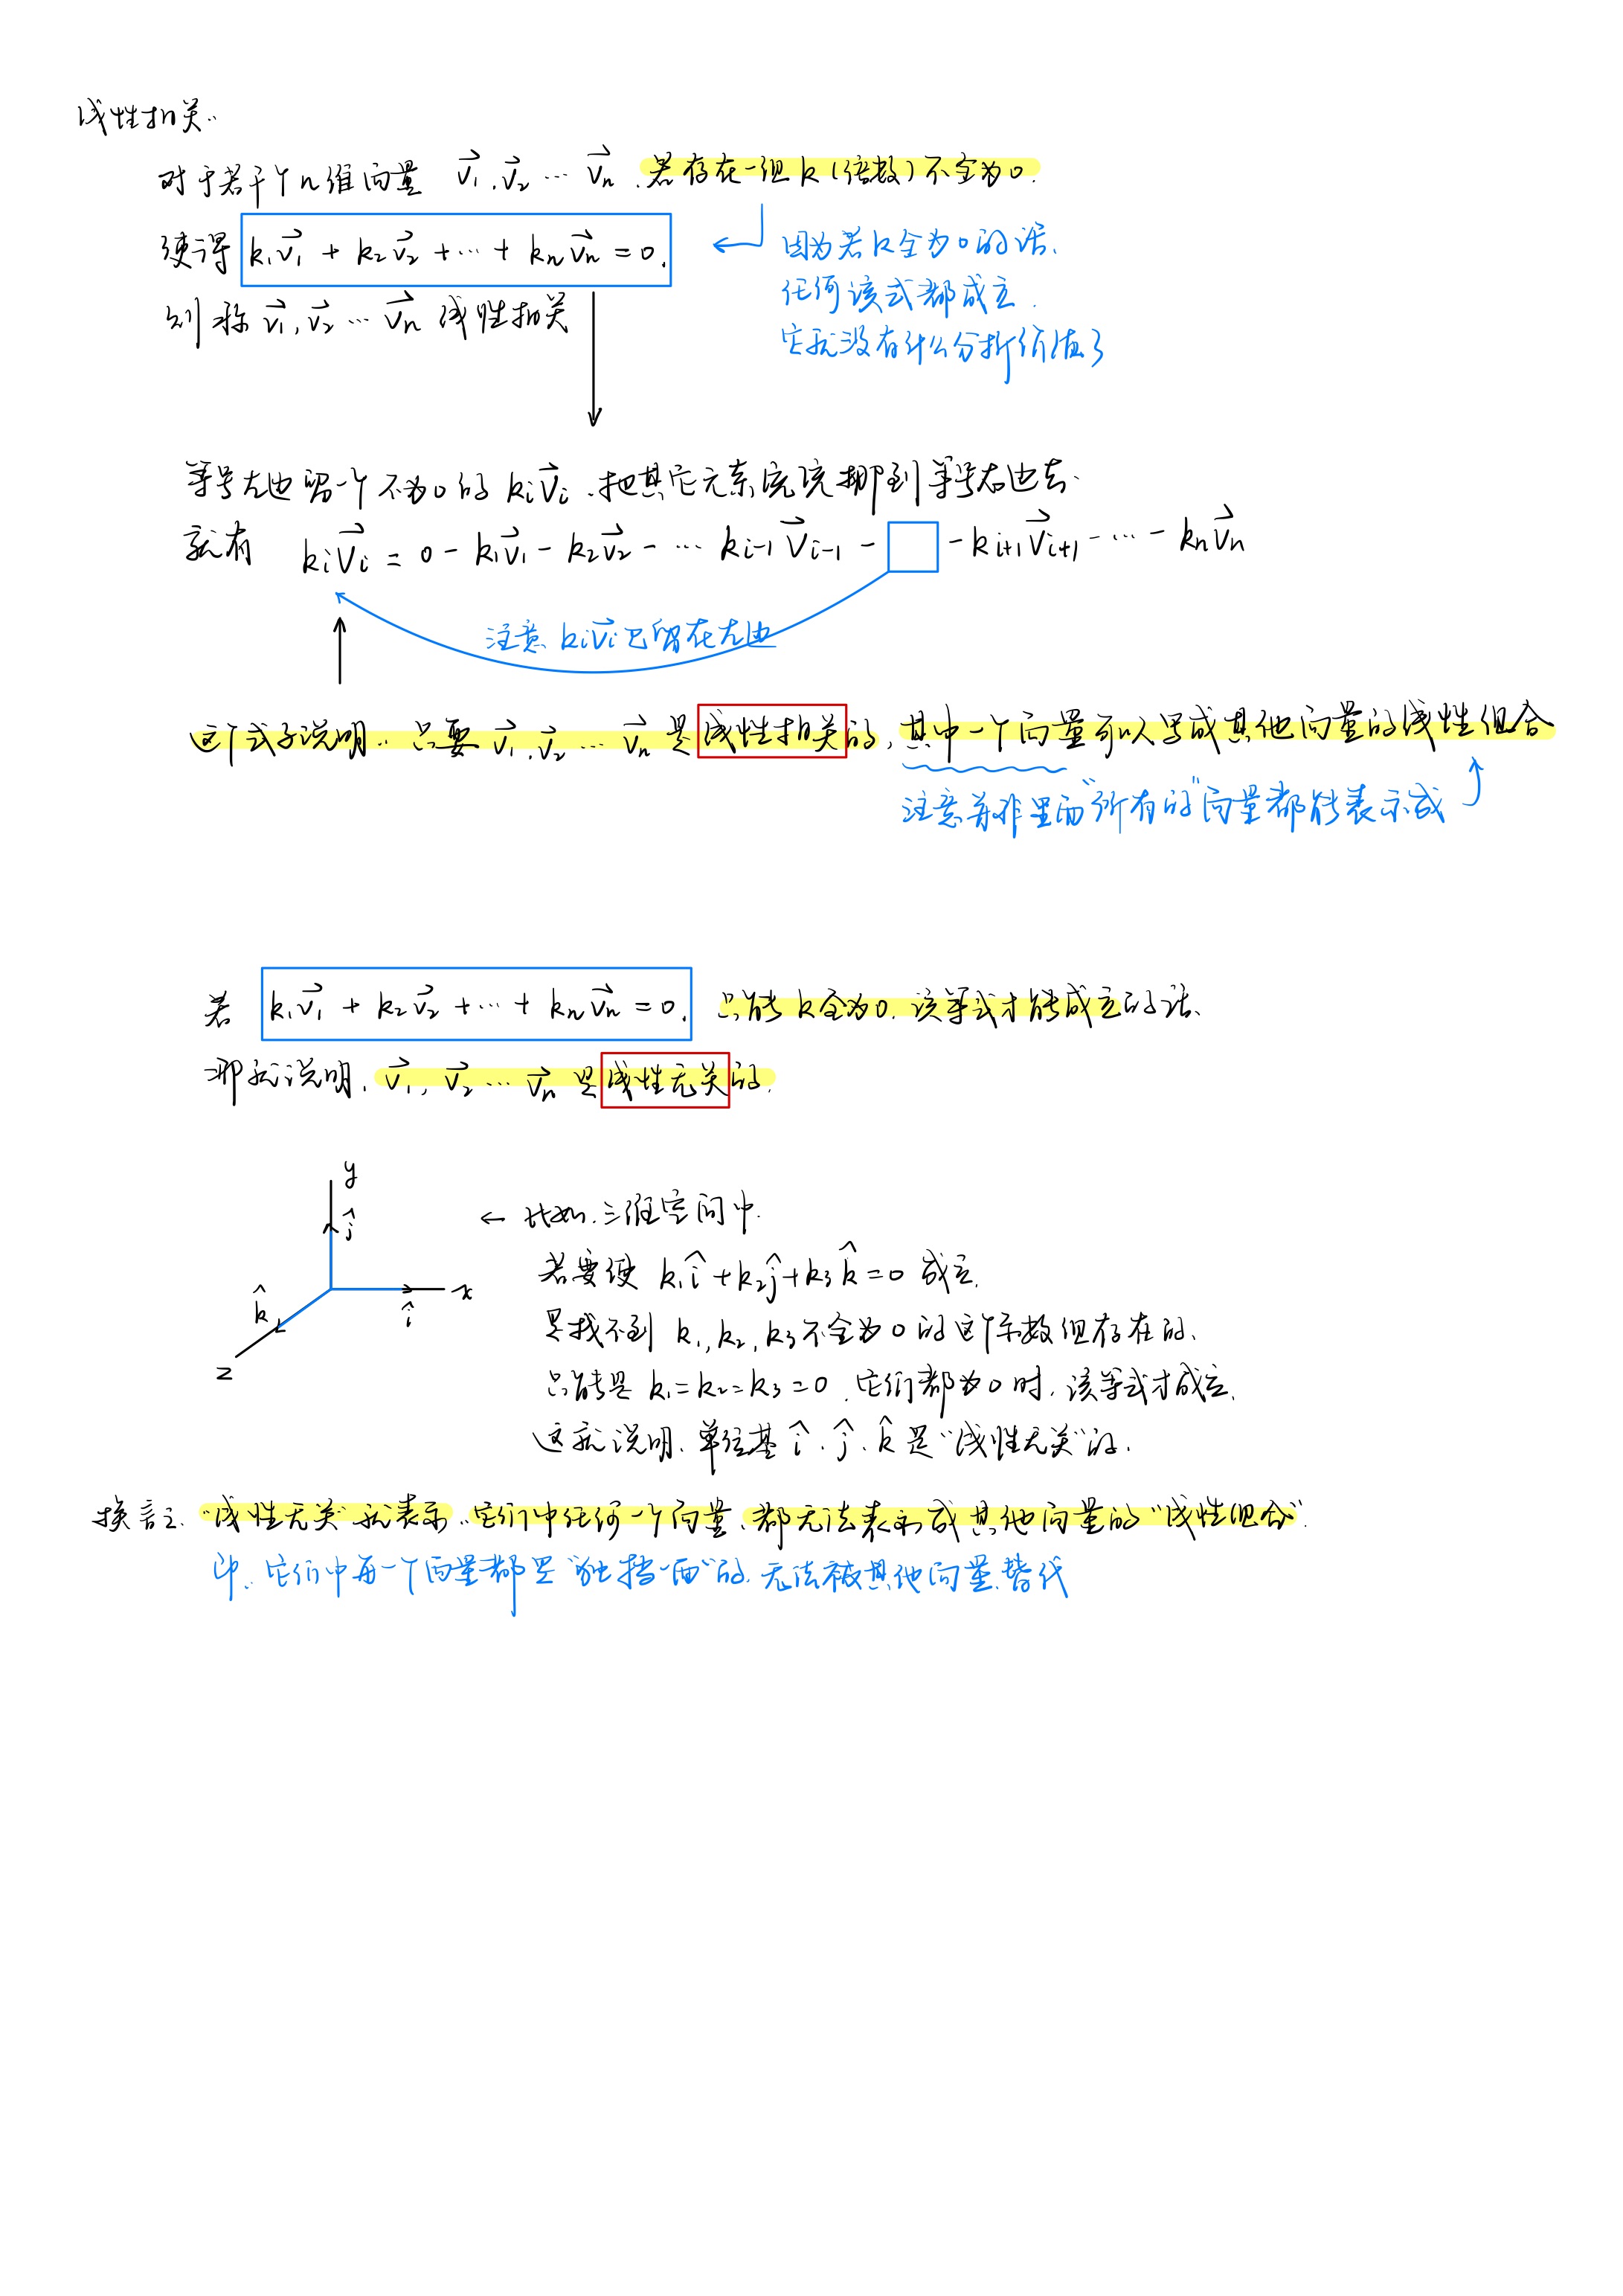 线性相关:
对于若干个n维向量 v⃗₁, v⃗₂ … v⃗ₙ, 若存在一组k(倍数)不全为0,
使得 k₁v⃗₁ + k₂v⃗₂ + … + kₙv⃗ₙ = 0,
因为若k全为0的话,
任何该式都成立,
则称 v⃗₁, v⃗₂ … v⃗ₙ 线性相关
它就没有什么分析价值了
等号左边留一个不为0的 kᵢv⃗ᵢ, 把其它元素统统挪到等号右边去,
就有 kᵢv⃗ᵢ = 0 - k₁v⃗₁ - k₂v⃗₂ - … kᵢ₋₁v⃗ᵢ₋₁ - □ - kᵢ₊₁v⃗ᵢ₊₁ - … - kₙv⃗ₙ
注意 kᵢv⃗ᵢ 已留在左边
这个式子说明: 只要 v⃗₁, v⃗₂ … v⃗ₙ 是线性相关的, 其中一个向量可以写成其他向量的线性组合
注意并非里面"所有的"向量都能表示成
若 k₁v⃗₁ + k₂v⃗₂ + … + kₙv⃗ₙ = 0, 只能k全为0, 该等式才能成立的话,
那就说明, v⃗₁, v⃗₂ … v⃗ₙ 是线性无关的.
y
ĵ
x
î
k̂
z
← 比如, 三维空间中,
若要使 k₁î + k₂ĵ + k₃k̂ = 0 成立,
是找不到 k₁, k₂, k₃ 不全为0的这个系数组存在的,
只能是 k₁ = k₂ = k₃ = 0, 它们都为0时, 该等式才成立,
这就说明, 单位基 î, ĵ, k̂ 是"线性无关"的.
换言之, "线性无关"就表示, 它们中任何一个向量, 都无法表示成其他向量的"线性组合".
即, 它们中每一个向量都是"独挡一面"的, 无法被其他向量替代